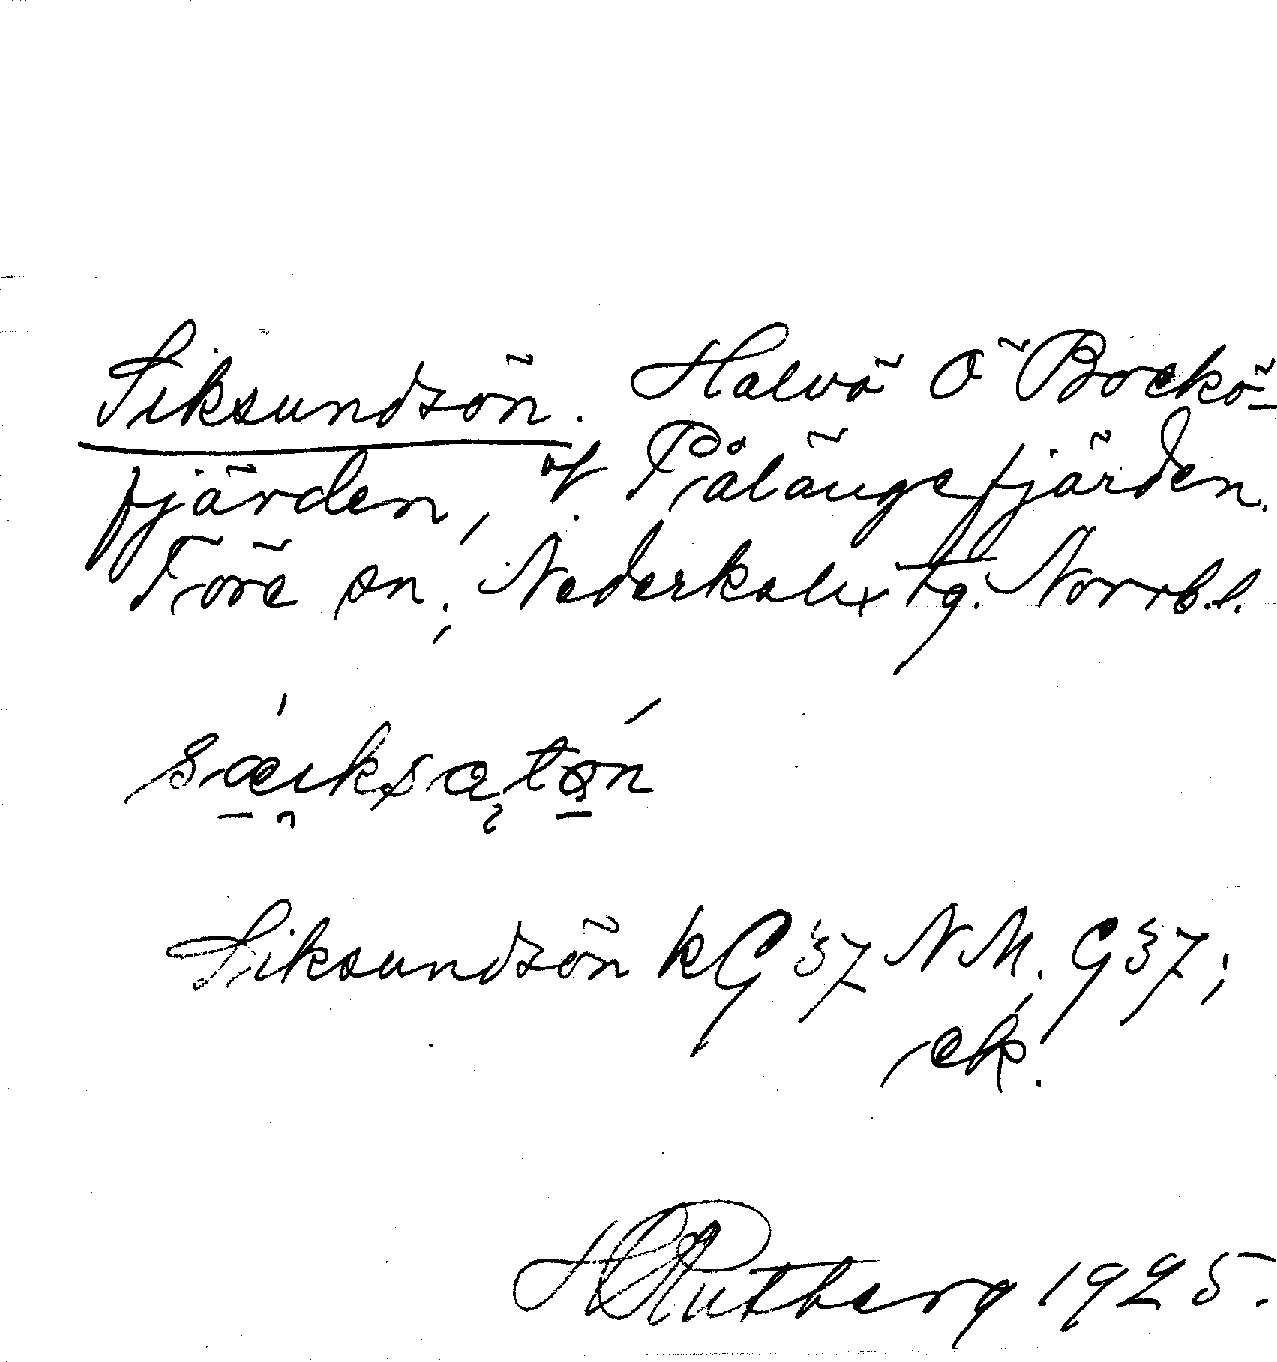 Siksundsön. Halvö Ö Bockö-
fjärden, V Pålängefjärden.
Töre sn, Nederkalix tg. Norrb.l.
Siksundsön kG 37 NM. G 37;
ek.
H Rutberg 1925.